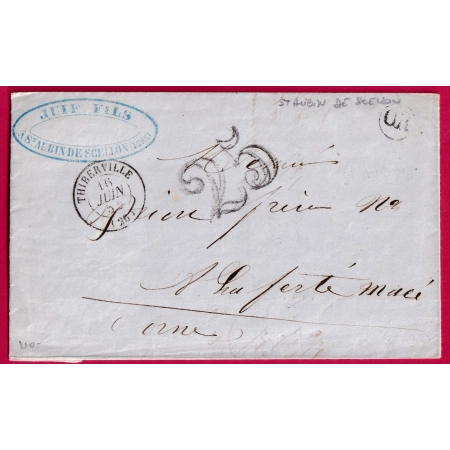 JUIF FILS
A ST AUBIN DE SCELLON (EURE)
ST AUBIN DE SCELLON
OR
THIBERVILLE
16
JUIN
(26)
Monsieur
frères
A La ferté macé
(orne)